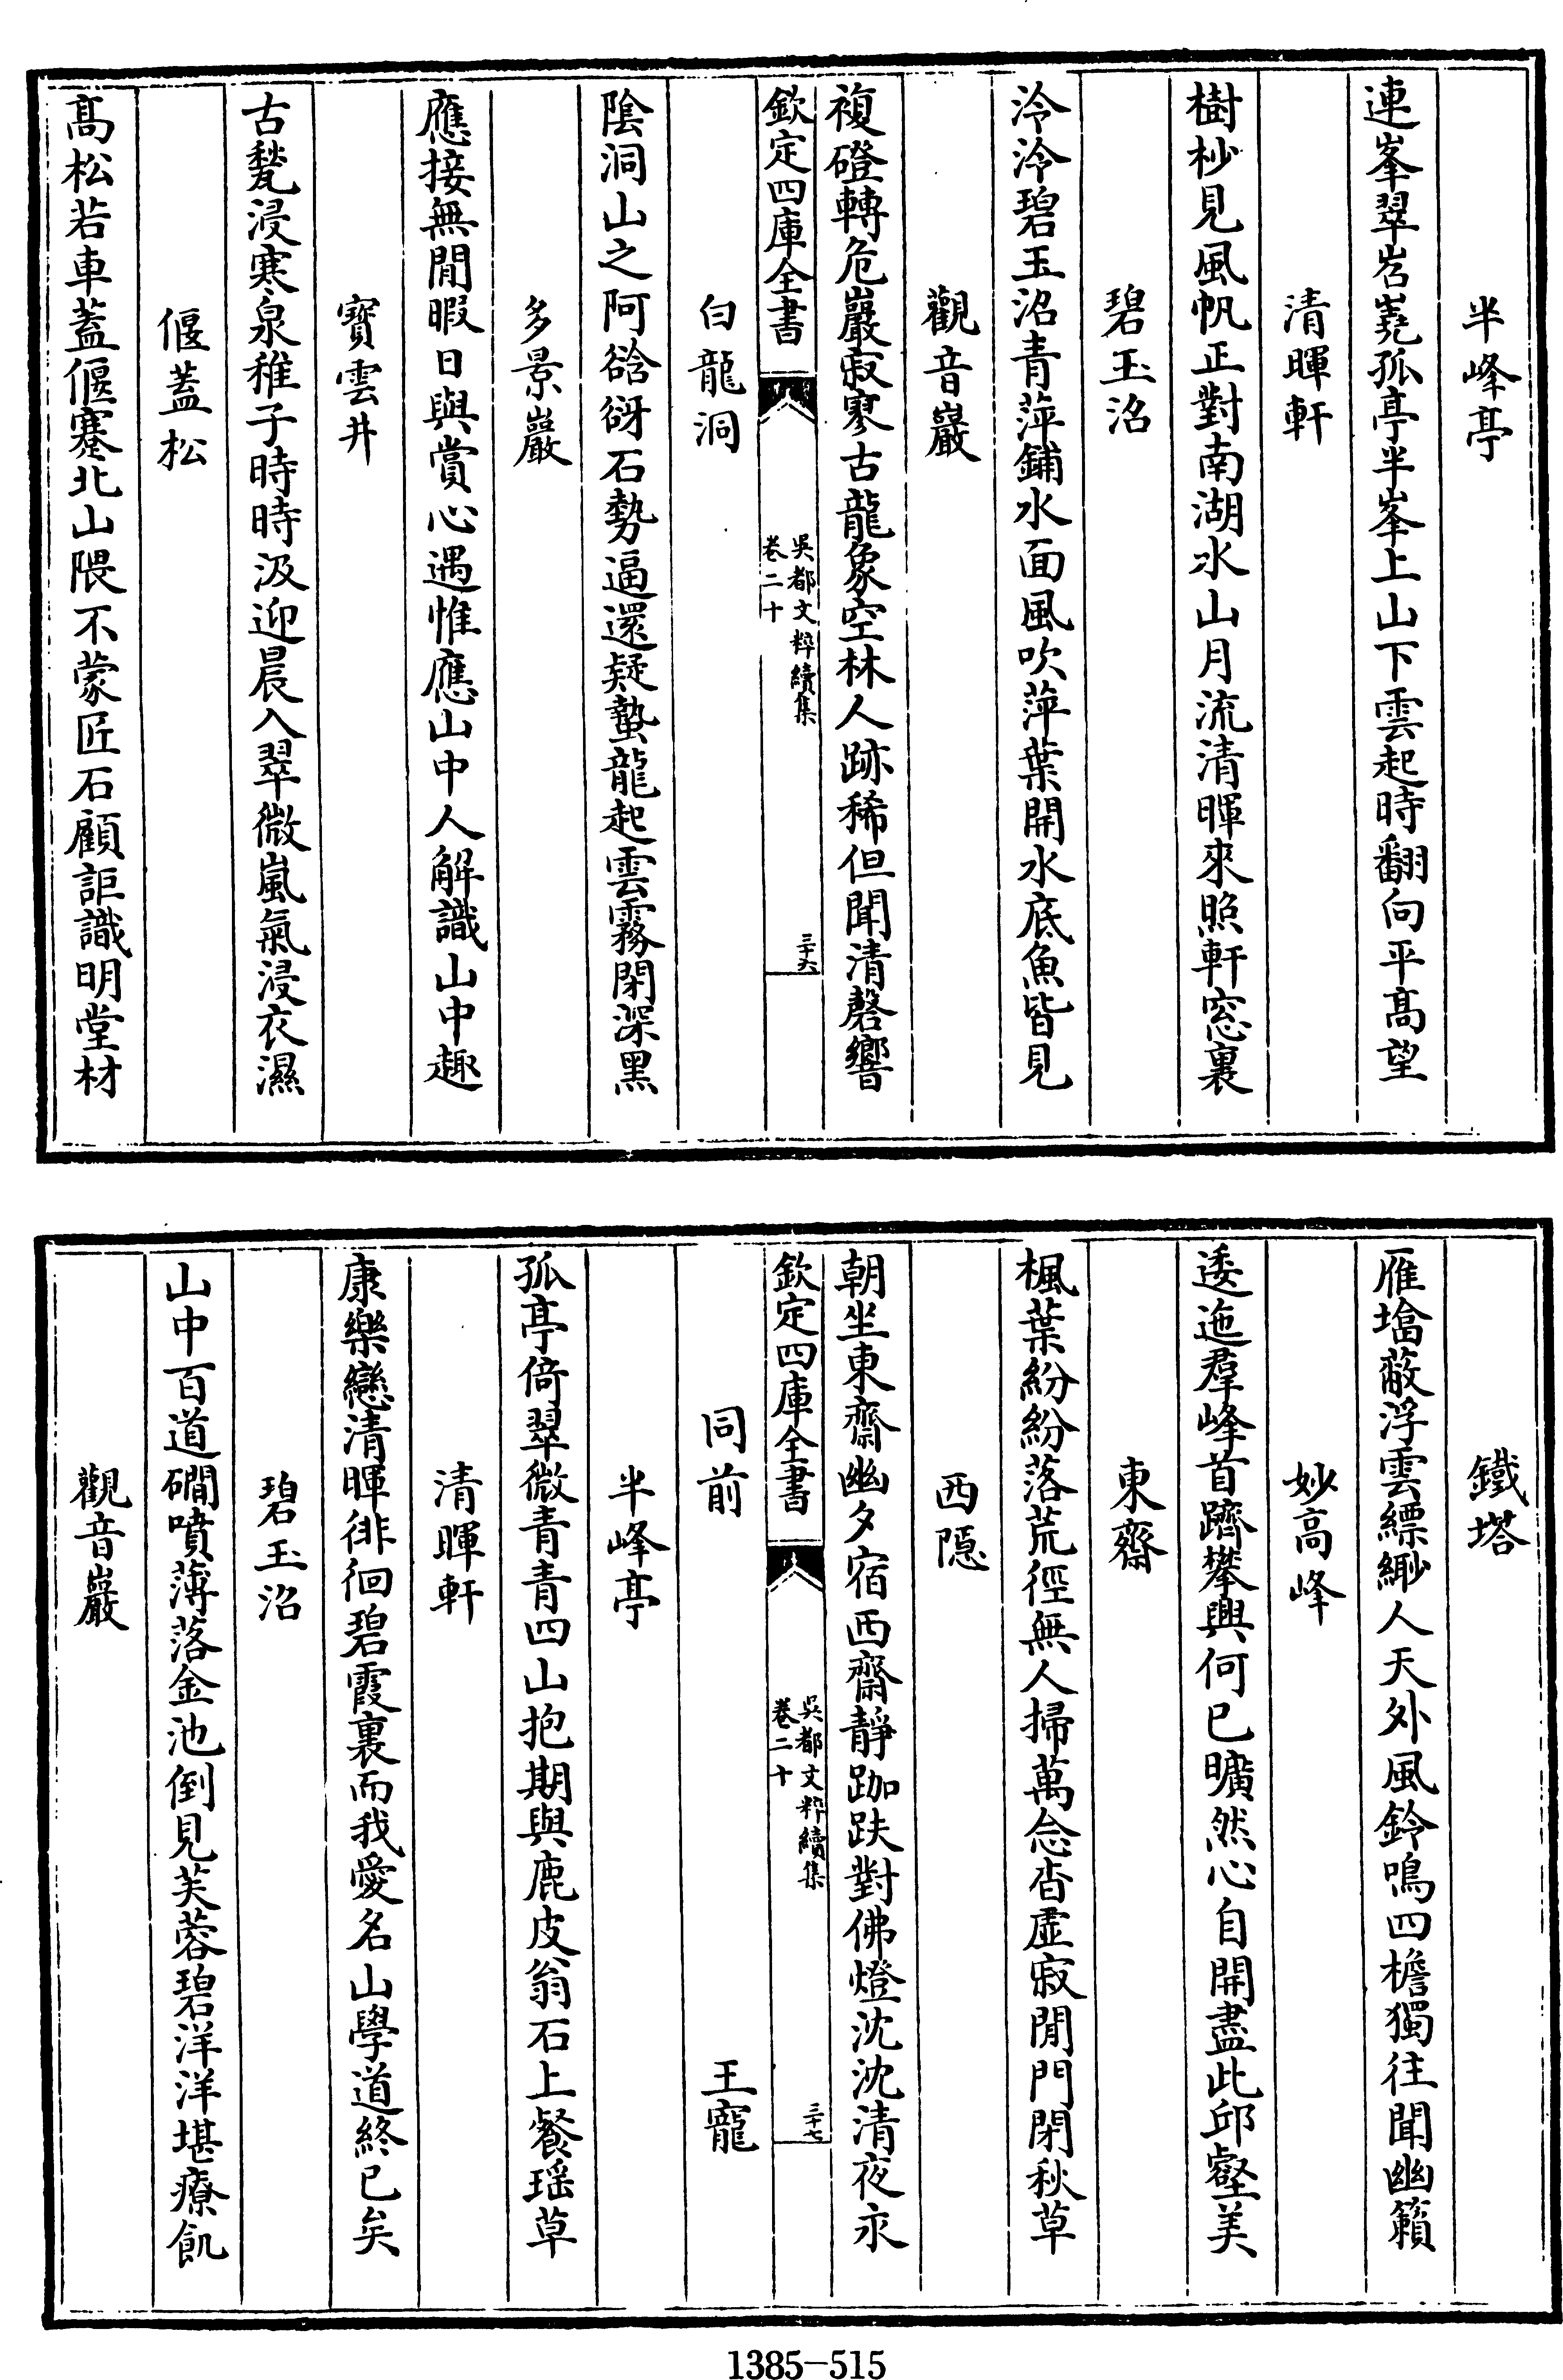 半峰亭
連峯翠岧嶤孤亭半峯上山下雲起時翻向平髙望
清暉軒
樹杪見風帆正對南湖水山月流清暉來照軒窓裏
碧玉沼
泠泠碧玉沼青萍鋪水面風吹萍葉開水底魚皆見
觀音巖
複磴轉危巖寂寥古龍象空林人跡稀但聞清磬響
欽定四庫全書
吳都文粹續集
卷二十
三十六
白龍洞
陰洞山之阿谽谺石勢逼還疑蟄龍起雲霧閉深黑
多景巖
應接無閒暇日與賞心遇惟應山中人解識山中趣
寶雲井
古甃浸寒泉稚子時時汲迎晨入翠微嵐氣浸衣濕
偃蓋松
髙松若車蓋偃蹇北山隈不蒙匠石顧詎識明堂材
鐵塔
雁㙮蔽浮雲縹緲人天外風鈴鳴四檐獨往聞幽籟
妙高峰
逶迤羣峰首躋攀興何已曠然心自開盡此邱壑美
東齋
楓葉紛紛落荒徑無人掃萬念杳虛寂閒門閉秋草
西隱
朝坐東齋幽夕宿西齋靜跏趺對佛燈沈沈清夜永
欽定四庫全書
吳都文粹續集
卷二十
三十七
同前　王寵
半峰亭
孤亭倚翠微青青四山抱期與鹿皮翁石上餐瑶草
清暉軒
康樂戀清暉徘徊碧霞裏而我愛名山學道終已矣
碧玉沼
山中百道磵噴薄落金池倒見芙蓉碧洋洋堪療飢
觀音巖
1385-515